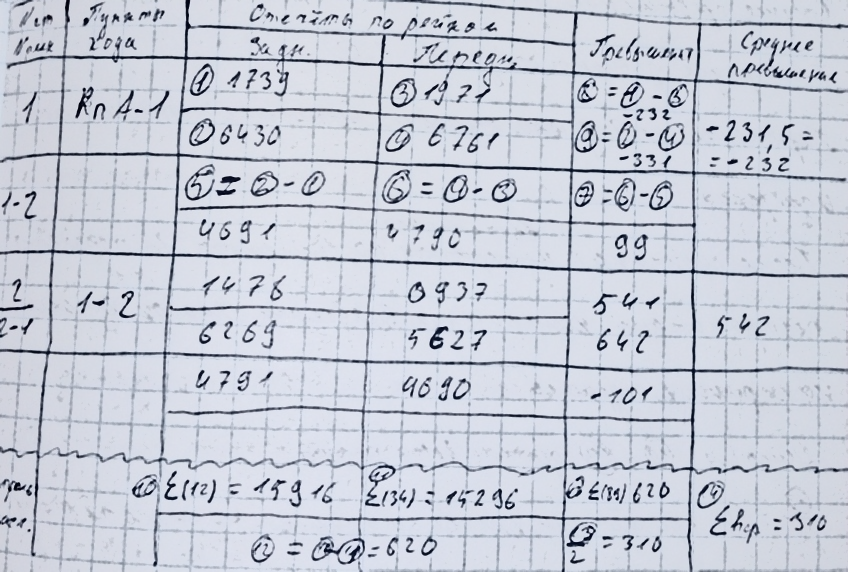 Пункты хода
Отсчёты по рейкам
Задн. Передн.
Превышения
Среднее превышение
1 Rп A-1 ① 1739 ③ 1971 ⑧ = ① - ③ -232
② 6430 ④ 6761 ⑨ = ② - ④ -331 -231,5 = = -232
1-2 ⑤ = ② - ① ⑥ = ④ - ③ ⑦ = ⑥ - ⑤
4691 4790 99
2 1-2 1478 0937 541
2-1 6269 5627 642 542
4791 4690 -101
⑩ Σ(12) = 15916 Σ(34) = 15296 620 ⑭ Σhср = 310
= 620 2 = 310